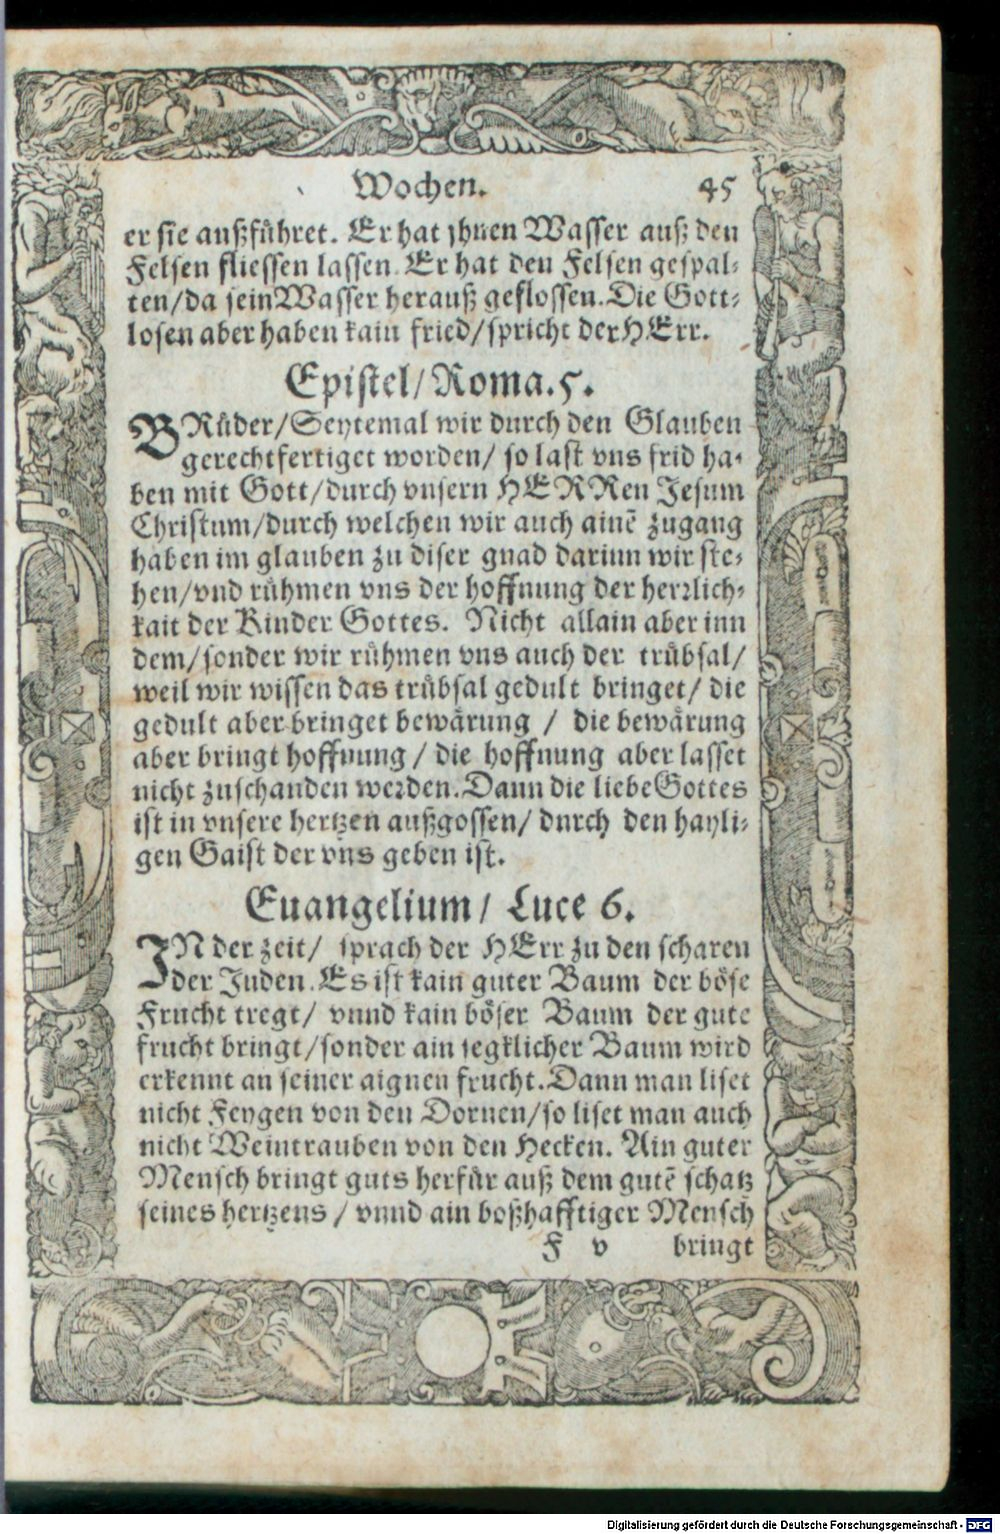 Wochen. 45
er sie außfůhret. Er hat jhnen Wasser auß den
Felsen fliessen lassen. Er hat den Felsen gespal⸗
ten/da sein Wasser herauß geflossen. Die Gott⸗
losen aber haben kain fried/spricht der HErr.
Epistel/Roma.5.
BRůder/Seytemal wir durch den Glauben
gerechtfertiget worden/ so last vns frid ha⸗
ben mit Gott/durch vnsern HERRen Jesum
Christum/durch welchen wir auch ainē zugang
haben im glauben zu diser gnad darinn wir ste⸗
hen/vnd růhmen vns der hoffnung der herꝛlich⸗
kait der Kinder Gottes. Nicht allain aber inn
dem/sonder wir růhmen vns auch der trůbsal/
weil wir wissen das trůbsal gedult bringet/ die
gedult aber bringet bewårung / die bewårung
aber bringt hoffnung / die hoffnung aber lasset
nicht zuschanden weꝛden. Dann die liebe Gottes
ist in vnsere hertzen außgossen/ durch den hayli⸗
gen Gaist der vns geben ist.
Euangelium/ Luce 6.
IN der zeit/ sprach der HErr zu den scharen
der Juden. Es ist kain guter Baum der böse
Frucht tregt/ vnnd kain böser Baum der gute
frucht bringt/sonder ain jegklicher Baum wird
erkennt an seiner aignen frucht. Dann man liset
nicht Feygen von den Dornen/so liset man auch
nicht Weintrauben von den Hecken. Ain guter
Mensch bringt guts herfůr auß dem gutē schatz
seines hertzens / vnnd ain boßhafftiger Mensch
F v bringt
Digitalisierung gefördert durch die Deutsche Forschungsgemeinschaft - DFG